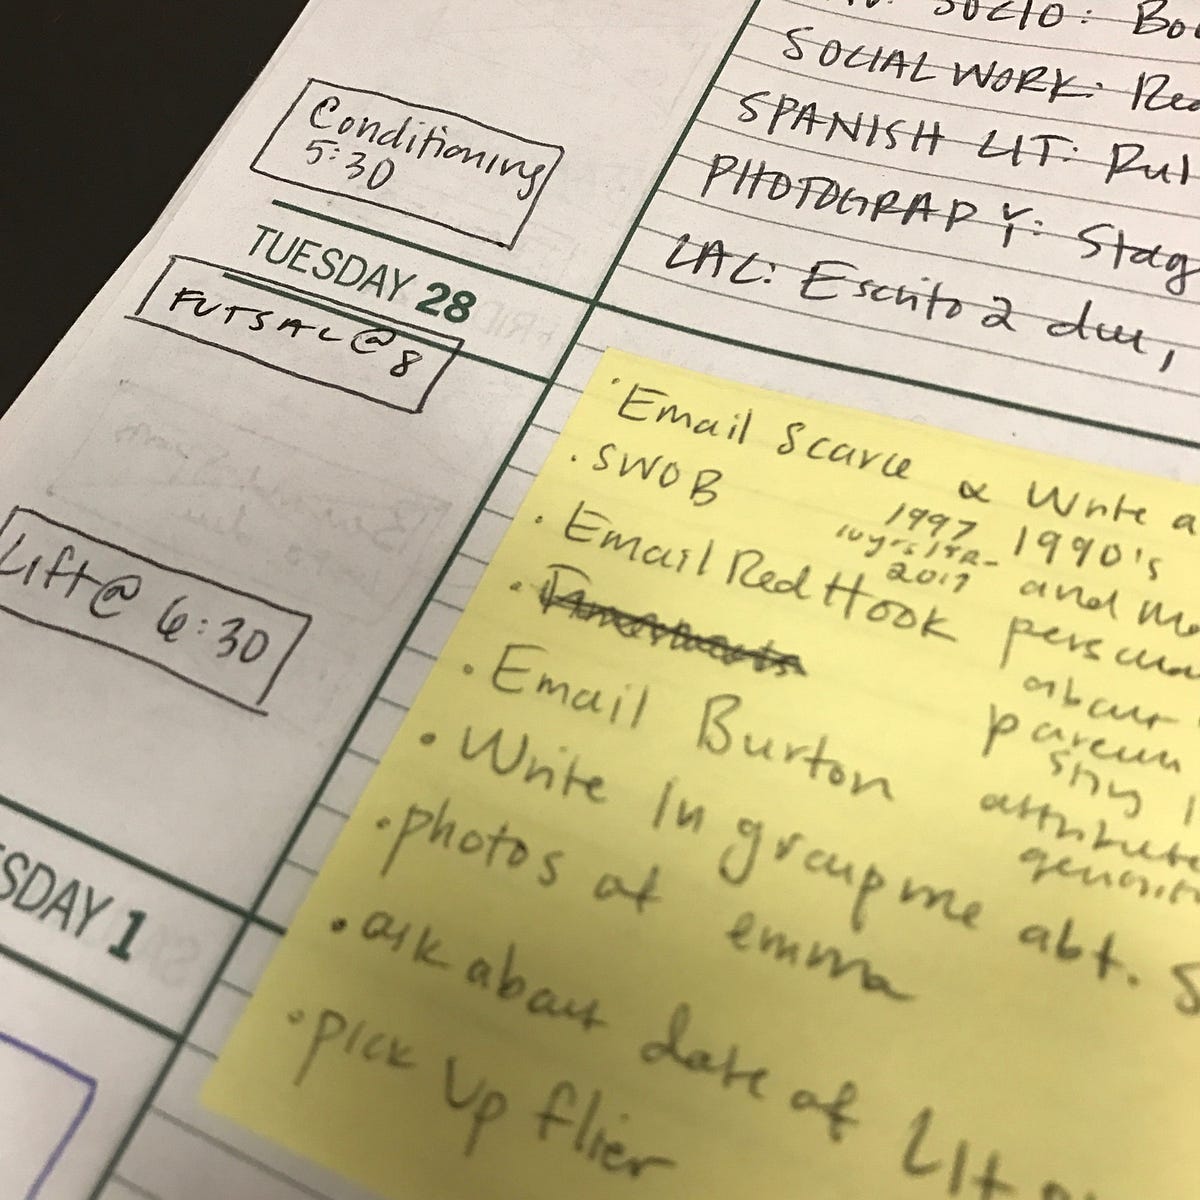 SOCIO: Bo
SOCIAL WORK: Rea
SPANISH LIT: Rul
PHOTOGRAPHY: Stag
LAC: Escrito 2 due,
Conditioning
5:30
TUESDAY 28
FUTSAL @ 8
Lift @ 6:30
SDAY 1
· Email Scarce & Write a
· SWOB
1997 1990's
2017 and
· Email Red Hook
about
· Email Burton
· Write in groupme abt. S
· photos of emma
· ask about date of Lit
· pick up flier